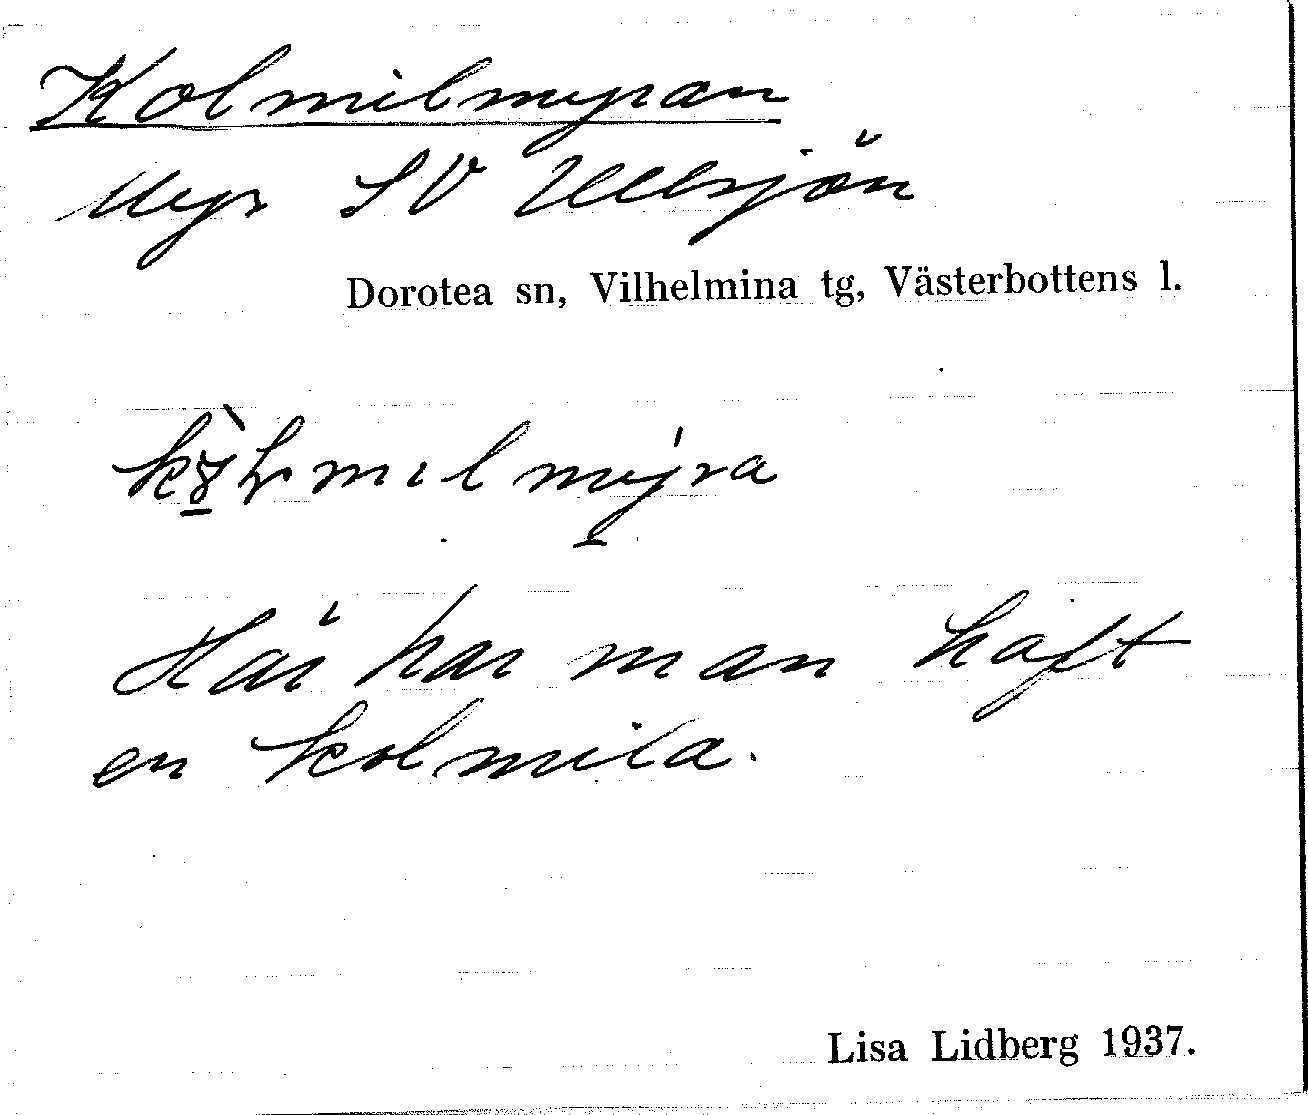 Kolmilmyran
Myr SV Ullsjön
Dorotea sn, Vilhelmina tg, Västerbottens l.
Här har man haft
en kolmila.
Lisa Lidberg 1937.